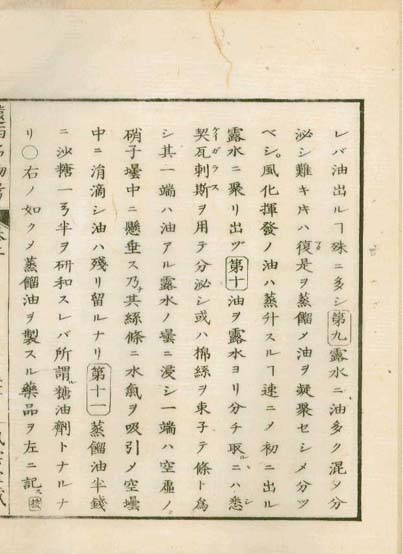 レバ油出ルヿ殊ニ多シ第九露水ニ油多ク混メ分
泌シ難キ片ハ復是ヲ蒸餾メ油ヲ凝聚セシメ分ツ
ベシ。風化揮發ノ油ハ蒸升スルヿ速ニメ初ニ出ル
露水ニ聚リ出ヅ第十油ヲ露水ヨリ分チ取ルニハ悉
契瓦刺斯ヲ用テ分泌シ或ハ棉絲ヲ束子テ條ト爲
シ其一端ハ油アル露水ノ壜ニ浸シ一端ハ空虚ノ
硝子壜中ニ懸垂ス乃其絲條ニ水氣ヲ吸引メ空壜
中ニ涓滴シ油ハ殘リ留ルナリ第十一蒸餾油半錢
ニ沙糖一弓半ヲ研和スレバ所謂糖油劑トナルナ
リ○右ノ如クメ蒸餾油ヲ製スル藥品ヲ左ニ記ス